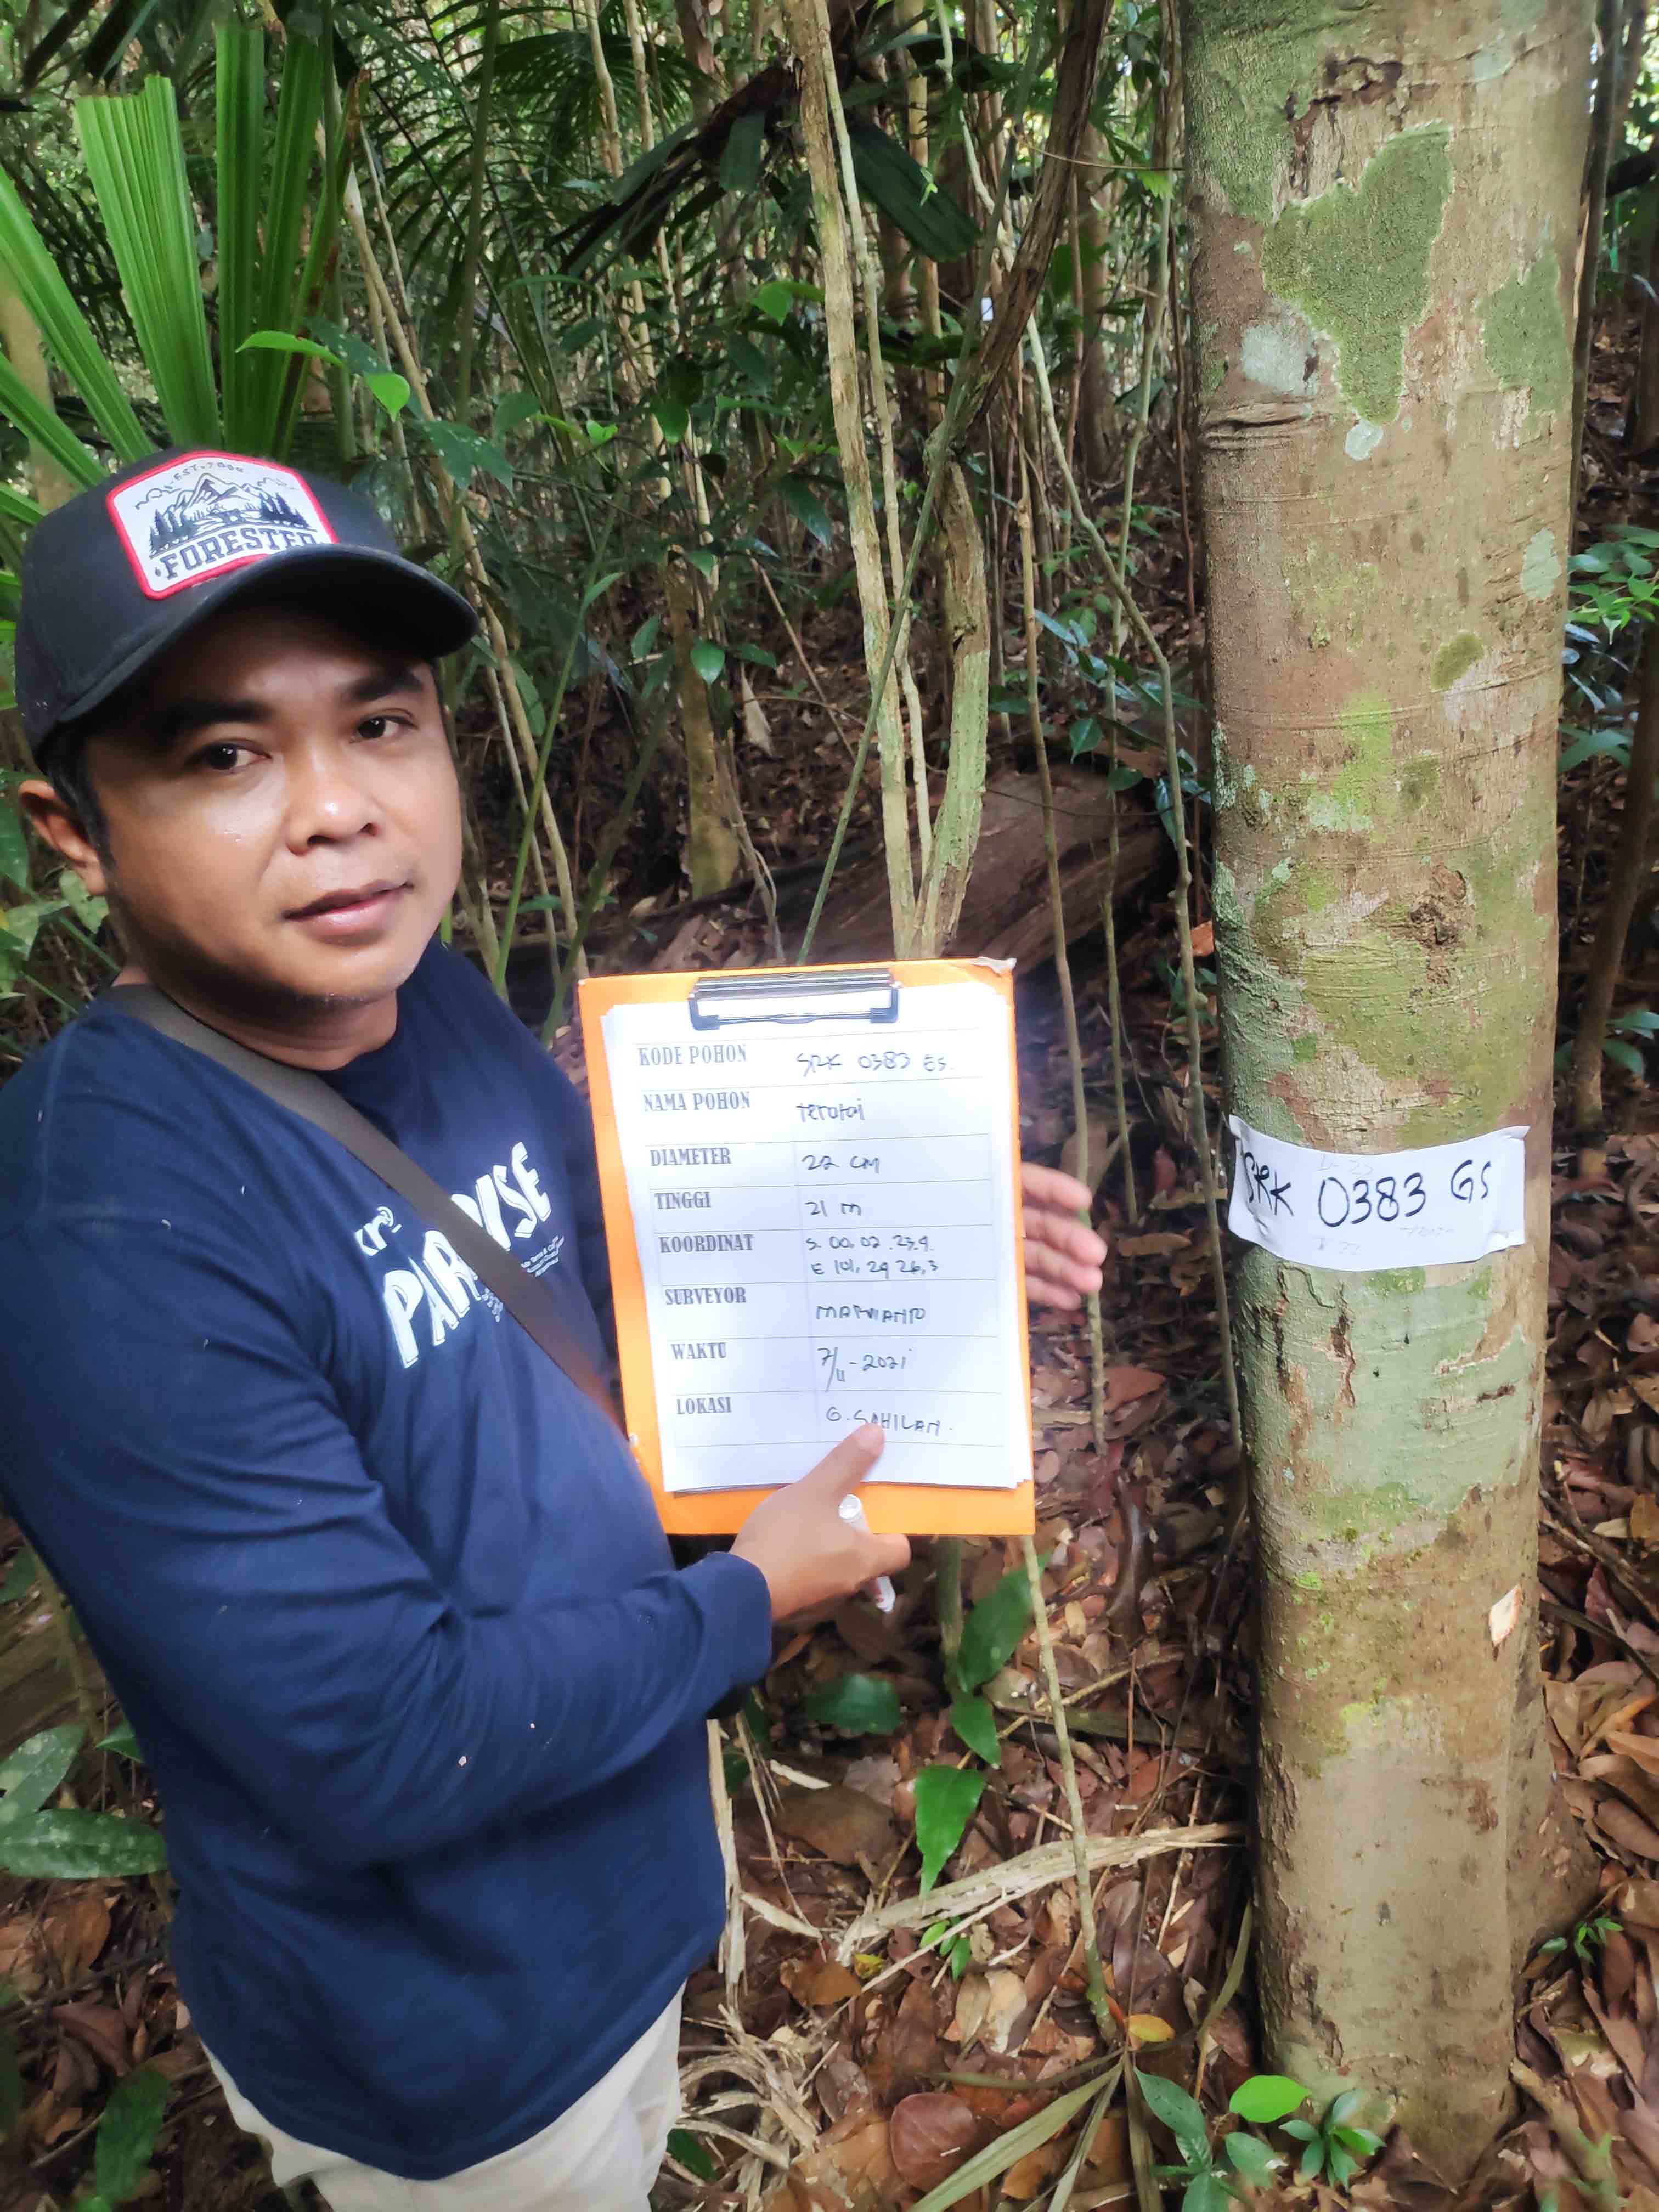 EST. 2000
FORESTER
PARADISE
KODE POHON SRK 0383 GS.
NAMA POHON terotai
DIAMETER 22 CM
TINGGI 21 m
KOORDINAT S. 00. 02. 23,9.
E 101. 29 26,3
SURVEYOR MARVIANTO
WAKTU 7/11-2021
LOKASI G. SAHILAN.
SRK 0383 GS